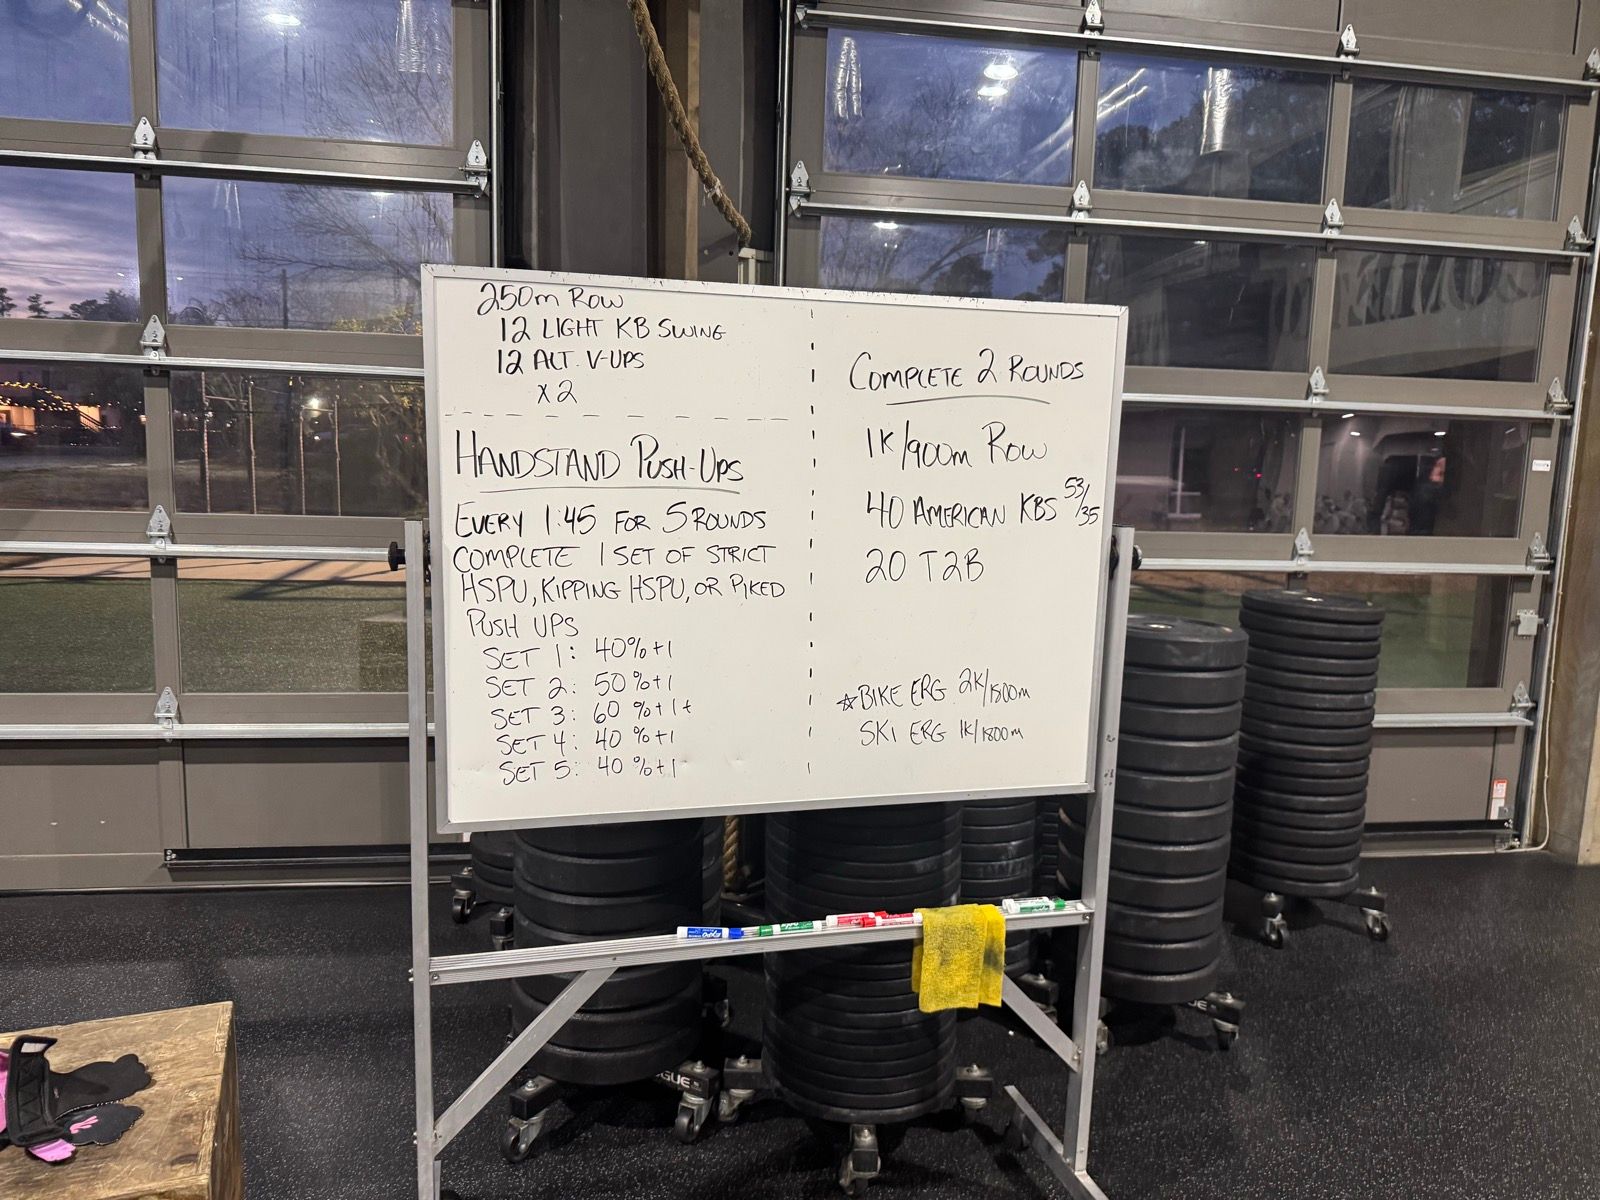 250m Row
12 LIGHT KB SWING
12 ALT. V-UPS
x 2
HANDSTAND PUSH-UPS
EVERY 1:45 FOR 5 ROUNDS
COMPLETE 1 SET OF STRICT
HSPU, KIPPING HSPU, OR PIKED
PUSH UPS
SET 1: 40%+1
SET 2: 50%+1
SET 3: 60%+1+
SET 4: 40%+1
SET 5: 40%+1
COMPLETE 2 ROUNDS
1K/900m ROW
40 AMERICAN KBS 53/35
20 T2B
☆BIKE ERG 2K/1500m
SKI ERG 1K/1800m
EXPO